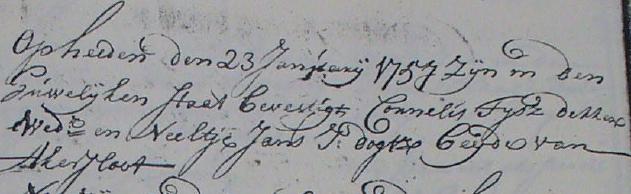 Op heeden den 23 Januarij 1757 Zijn in den
Huwelijken staat bevestigt Cornelis Tijsz dekker
Wed:r en Neeltje Jans J: dogter beijde van
Akersloot